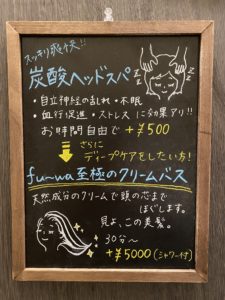 スッキリ爽快!!
炭酸ヘッドスパ
・自立神経の乱れ・不眠
・血行促進・ストレスに効果アリ!!
お時間自由で+¥500
さらに
ディープケアをしたい方!
fu~wa至極のクリームバス
天然成分のクリームで頭の芯まで
ほぐします。
見よ、この美髪。
30分~
+¥5000(シャワー付)
zzz
zzz